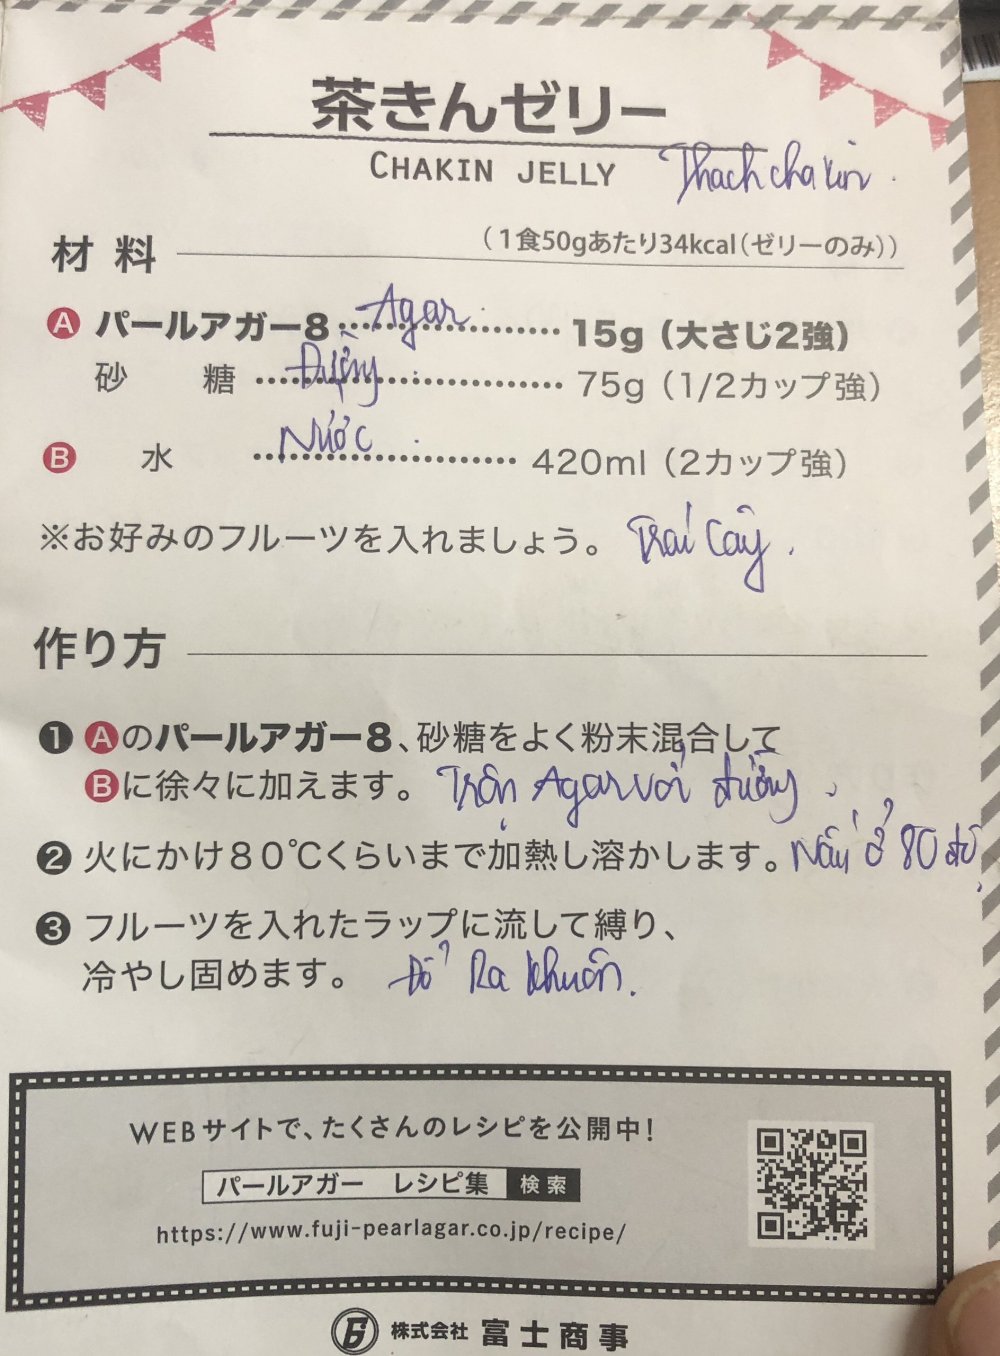 茶きんゼリー
CHAKIN JELLY Thạch chakin.
材料 （1食50gあたり34kcal（ゼリーのみ））
A パールアガー8 Agar 15g（大さじ2強）
砂糖 Đường 75g（1/2カップ強）
B 水 Nước 420ml（2カップ強）
※お好みのフルーツを入れましょう。 Trái cây.
作り方
❶ Aのパールアガー8、砂糖をよく粉末混合して
Bに徐々に加えます。 Trộn Agar với đường.
❷ 火にかけ80℃くらいまで加熱し溶かします。 Nấu ở 80 độ
❸ フルーツを入れたラップに流して縛り、
冷やし固めます。 Đổ Ra khuôn.
WEBサイトで、たくさんのレシピを公開中！
パールアガー レシピ集 検索
https://www.fuji-pearlagar.co.jp/recipe/
株式会社 富士商事